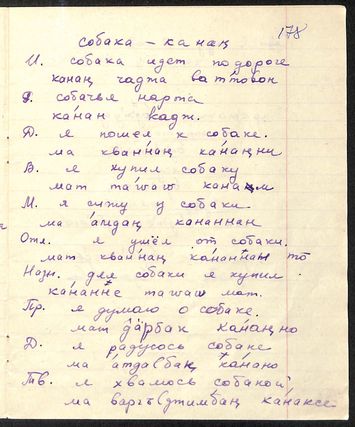 178
собака – канаӊ
И. собака идет по дороге
конаӊ чаджа ваттовон
Р. собачья нарта
ка́нан кадж.
Д. я пошел к собаке.
ма кванна́ӊ ка́наӊни
В. я купил собаку
мат та́wаw кана́м
М. я сижу у собаки
ма а́мдаӊ кананнан
Отл. я ушёл от собаки.
мат кваннаӊ кананнан то
Назн. для собаки я купил
ка́нанне таwаw мат.
Пр. я думаю о собаке.
мат та́рбак ка́наӊно
Д. я радуюсь собаке
ма а́тда(баӊ ка́нано
Тв. я хвалюсь собакой
ма варгъ(джимбаӊ ка́наксе